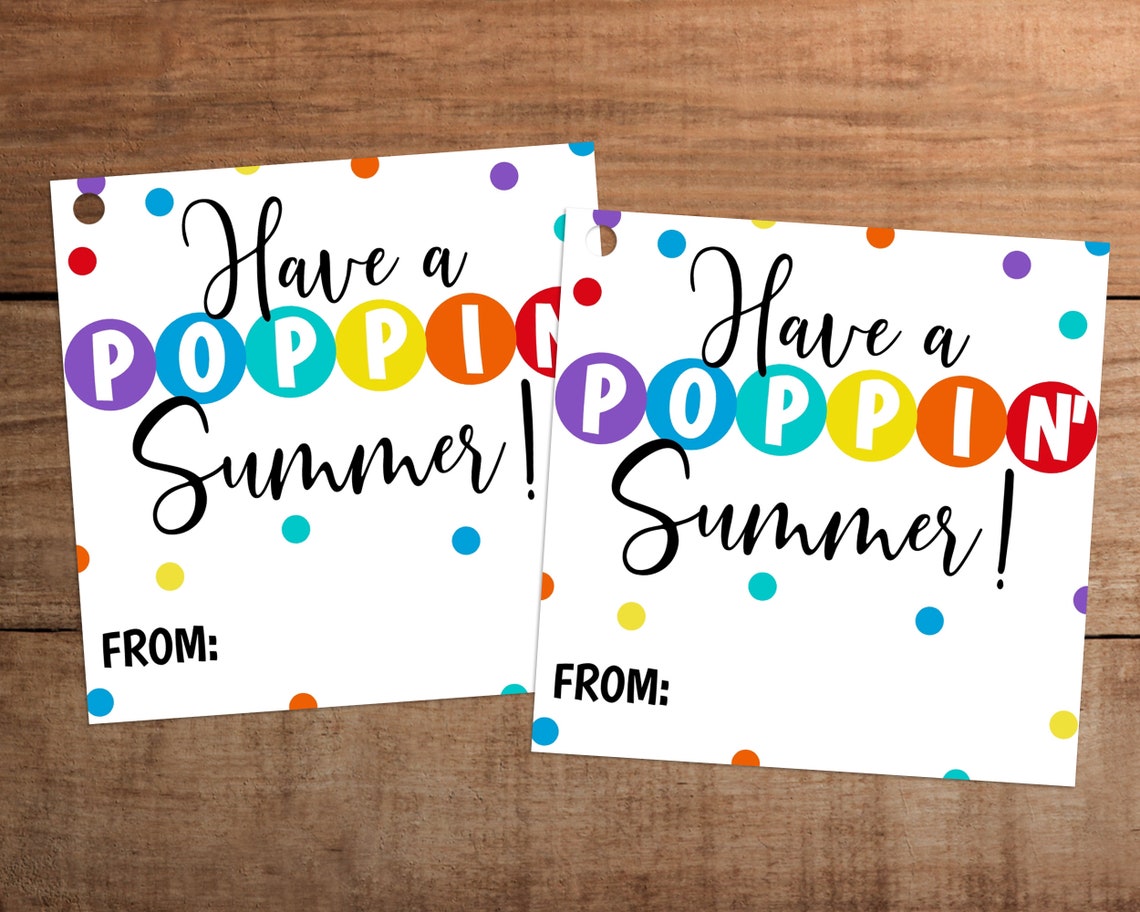 Have a
POPPIN
Summer!
FROM:
Have a
POPPIN'
Summer!
FROM: